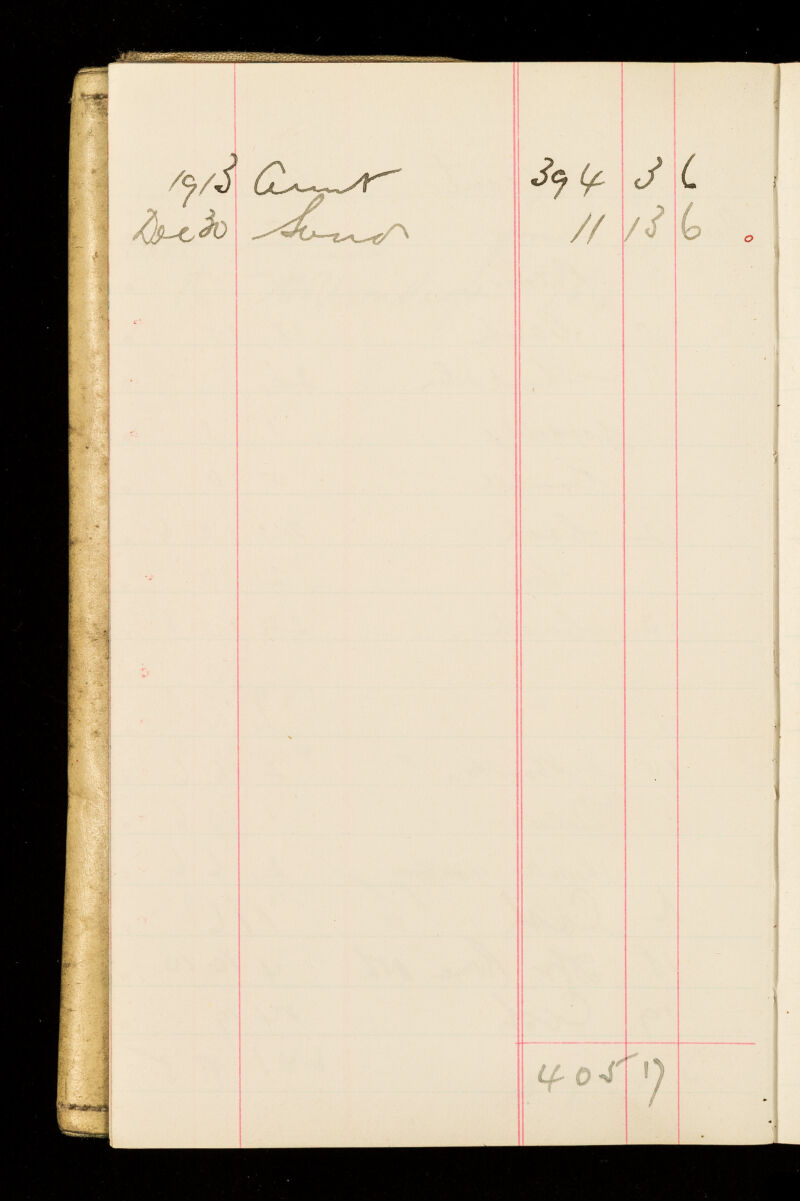 1913 Amt 394 3 6
Dec 30 Sund 11 13 6
405 17